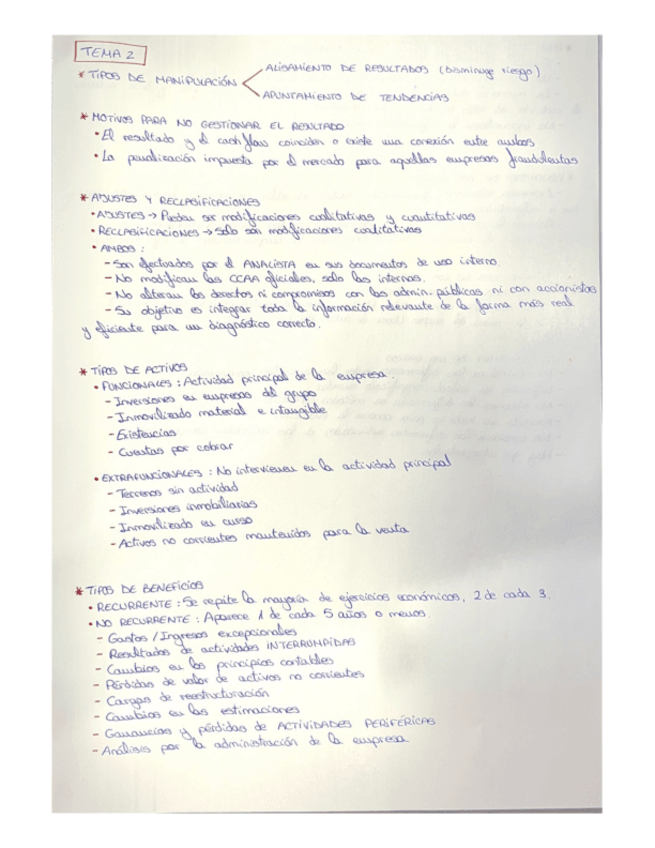 TEMA 2
* TIPOS DE MANIPULACIÓN
ALISAMIENTO DE RESULTADOS (Disminuye riesgo)
APUNTAMIENTO DE TENDENCIAS
* MOTIVOS PARA NO GESTIONAR EL RESULTADO
• El resultado y el cashflow coinciden o existe una conexión entre ambos
• La penalización impuesta por el mercado para aquellas empresas fraudulentas
* AJUSTES Y RECLASIFICACIONES
• AJUSTES → Pueden ser modificaciones cualitativas y cuantitativas
• RECLASIFICACIONES → Solo son modificaciones cualitativas
• AMBOS :
- Son efectuados por el ANALISTA en sus documentos de uso interno.
- No modifican las CCAA oficiales, solo las internas.
- No alteran los derechos ni compromisos con las admin. públicas ni con accionistas
- Su objetivo es integrar toda la información relevante de la forma más real
y eficiente para un diagnóstico correcto.
* TIPOS DE ACTIVOS
• FUNCIONALES : Actividad principal de la empresa.
- Inversiones en empresas del grupo
- Inmovilizado material e intangible
- Existencias
- Cuentas por cobrar
• EXTRAFUNCIONALES : No intervienen en la actividad principal
- Terrenos sin actividad
- Inversiones inmobiliarias
- Inmovilizado en curso
- Activos no corrientes mantenidos para la venta
* TIPOS DE BENEFICIOS
• RECURRENTE : Se repite la mayoría de ejercicios económicos, 2 de cada 3.
• NO RECURRENTE : Aparece 1 de cada 5 años o menos.
- Gastos / Ingresos excepcionales
- Resultados de actividades INTERRUMPIDAS
- Cambios en los principios contables
- Pérdidas de valor de activos no corrientes
- Cargas de reestructuración
- Cambios en las estimaciones
- Ganancias y pérdidas de ACTIVIDADES PERIFÉRICAS
- Análisis por la administración de la empresa